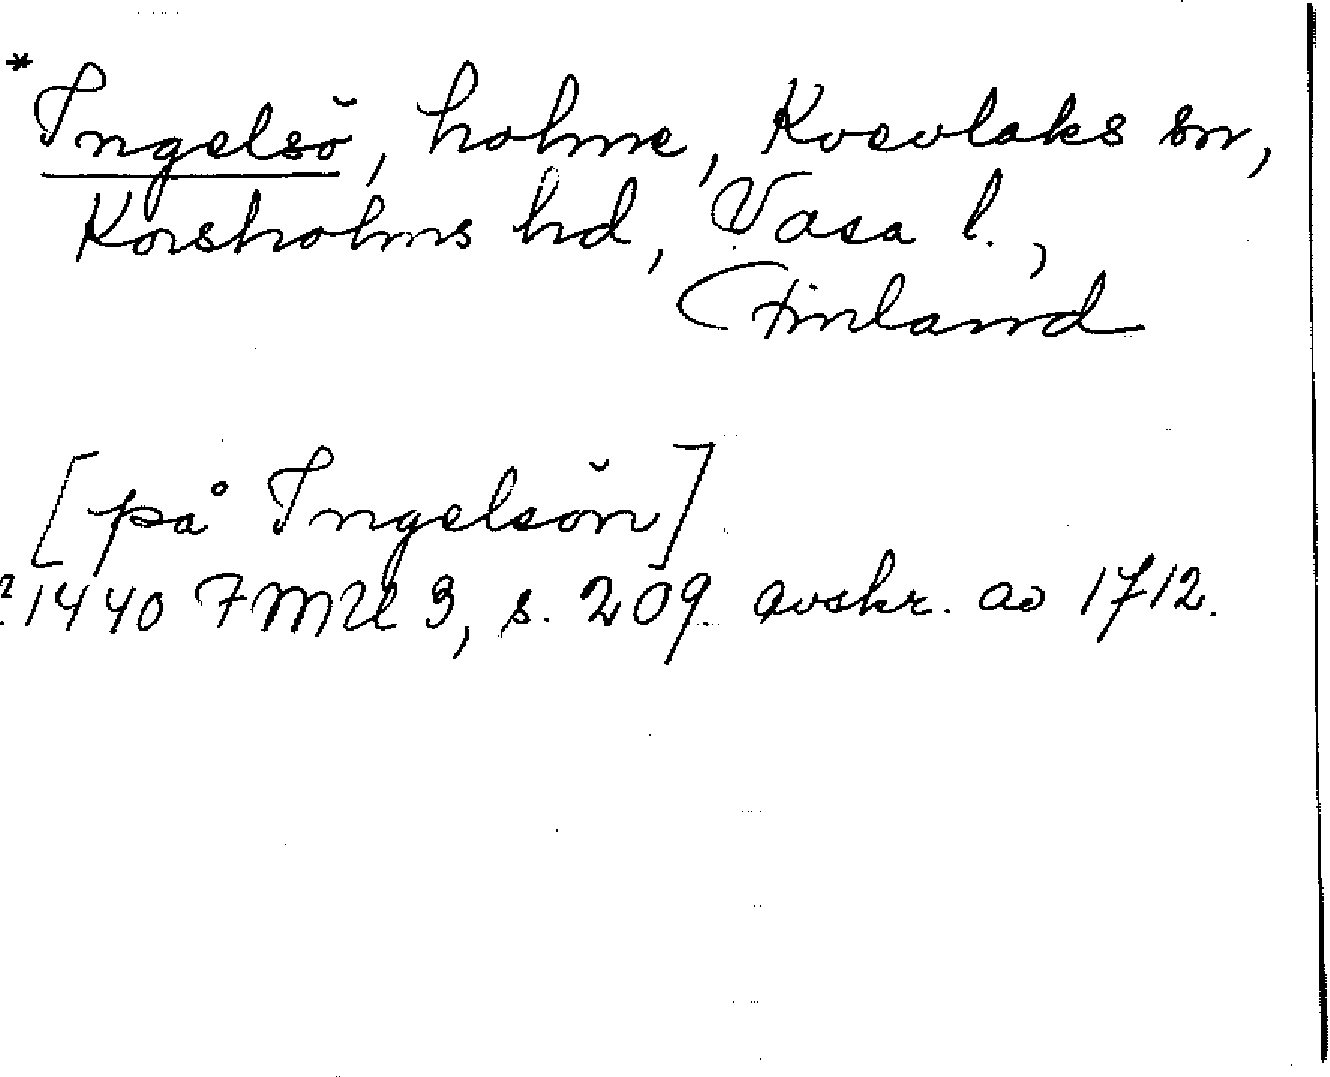 *Ingelsö, holme, Kvevlaks sn,
Korsholms hd, Vasa l.,
Finland
[på Ingelsön]
1440 FMU 3, s. 209. avskr. av 1712.